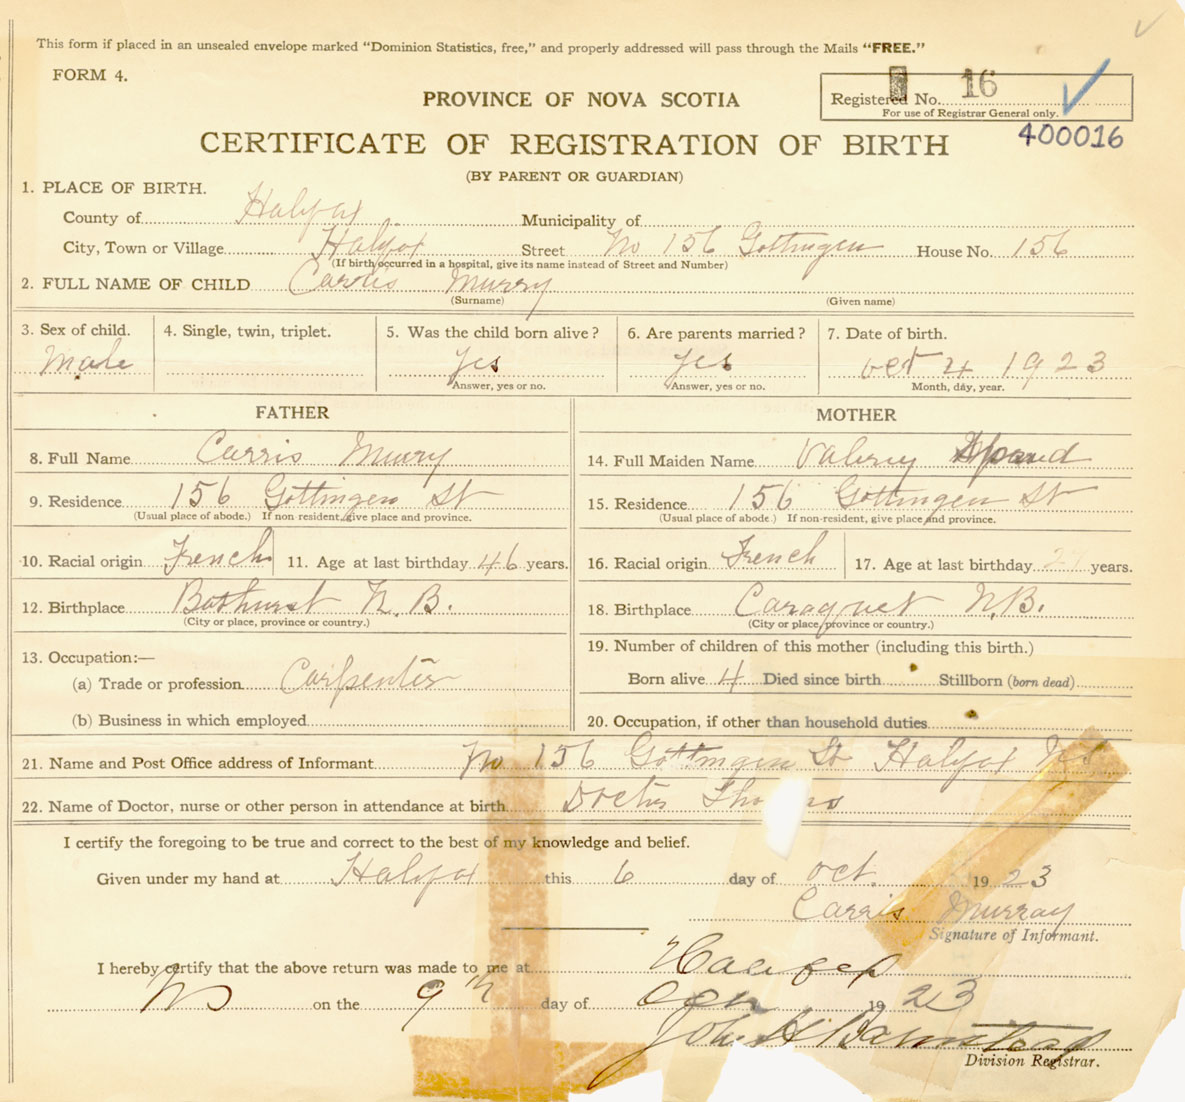 This form if placed in an unsealed envelope marked "Dominion Statistics, free," and properly addressed will pass through the Mails "FREE."
FORM 4.
Registered No. 16
For use of Registrar General only.
400016
PROVINCE OF NOVA SCOTIA
CERTIFICATE OF REGISTRATION OF BIRTH
(BY PARENT OR GUARDIAN)
1. PLACE OF BIRTH.
County of Halifax Municipality of
City, Town or Village Halifax Street No 156 Gottingen House No. 156
(If birth occurred in a hospital, give its name instead of Street and Number)
2. FULL NAME OF CHILD Carris Murry
(Surname) (Given name)
3. Sex of child. 4. Single, twin, triplet. 5. Was the child born alive? 6. Are parents married? 7. Date of birth.
Male yes yes Oct 4 1923
Answer, yes or no. Answer, yes or no. Month, day, year.
FATHER
8. Full Name Carris Murry
9. Residence 156 Gottingen St
(Usual place of abode.) If non-resident, give place and province.
10. Racial origin French 11. Age at last birthday 46 years.
12. Birthplace Bathurst N.B.
(City or place, province or country.)
13. Occupation:—
(a) Trade or profession Carpenter
(b) Business in which employed
MOTHER
14. Full Maiden Name Valery
15. Residence 156 Gottingen St
(Usual place of abode.) If non-resident, give place and province.
16. Racial origin French 17. Age at last birthday years.
18. Birthplace Caraquet N.B.
(City or place, province or country.)
19. Number of children of this mother (including this birth.)
Born alive 4 Died since birth Stillborn (born dead)
20. Occupation, if other than household duties
21. Name and Post Office address of Informant No 156 Gottingen St Halifax NS
22. Name of Doctor, nurse or other person in attendance at birth Doctor
I certify the foregoing to be true and correct to the best of my knowledge and belief.
Given under my hand at Halifax this 6 day of Oct. 1923
Carris Murray
Signature of Informant.
I hereby certify that the above return was made to me at Halifax
NS on the 9th day of Oct 1923
Division Registrar.